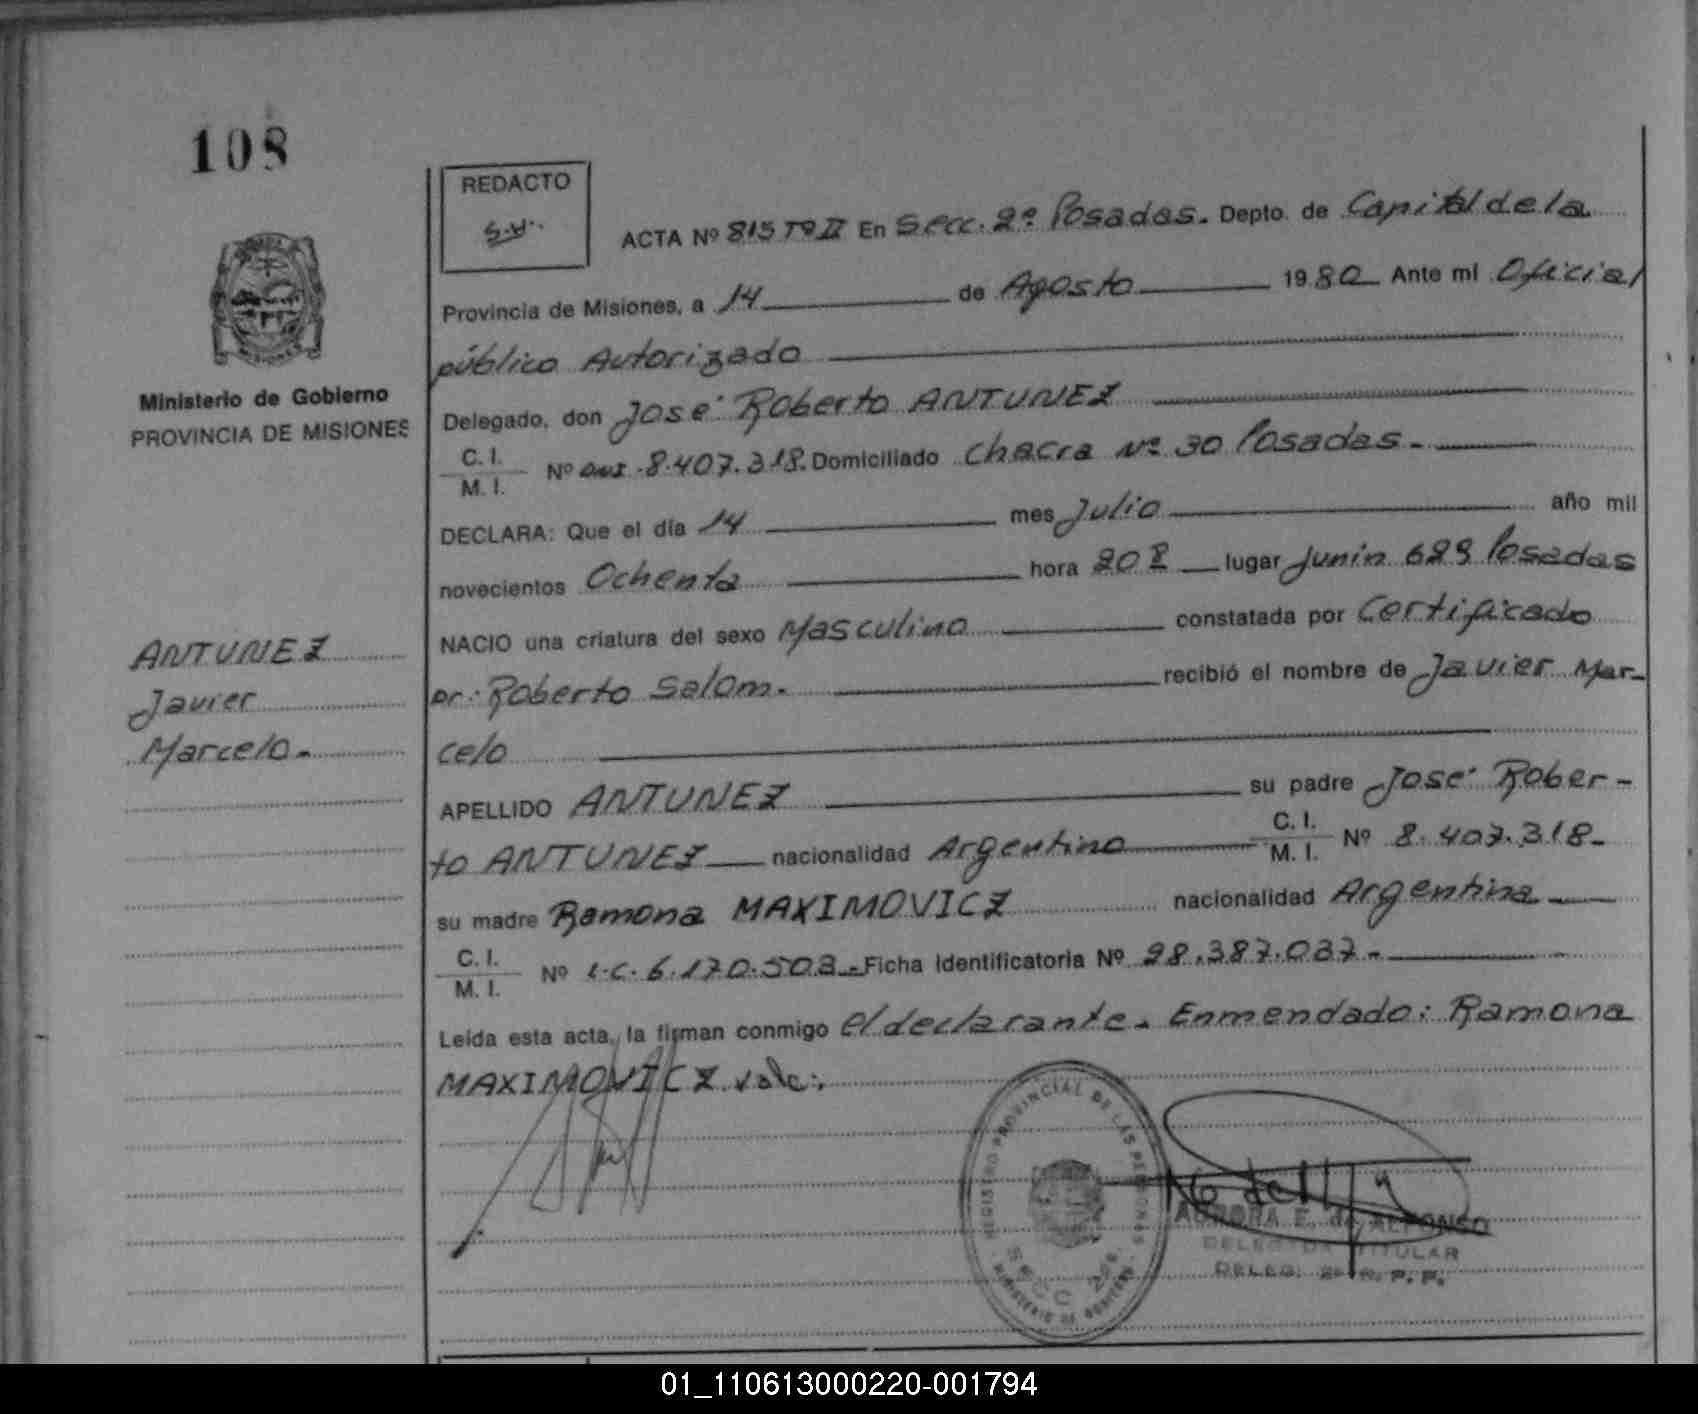 108
REDACTO
S.V.
ACTA Nº 815 Tº II En Secc. 2º Posadas. Depto. de Capital de la
Provincia de Misiones, a 14 de Agosto 1980 Ante mi Oficial
público Autorizado
MISIONES
Ministerio de Gobierno
PROVINCIA DE MISIONES
Delegado, don José Roberto ANTUNEZ
C. I.
M. I.
Nº 8.407.318. Domiciliado Chacra Nº 30 Posadas.
DECLARA: Que el día 14 mes Julio año mil
novecientos Ochenta hora lugar Junin 689 Posadas
NACIO una criatura del sexo Masculino constatada por Certificado
Dr: Roberto Salom. recibió el nombre de Javier Mar-
celo
ANTUNEZ
Javier
Marcelo.
APELLIDO ANTUNEZ su padre José Rober-
to ANTUNEZ nacionalidad Argentino C. I. M. I. Nº 8.407.318.
su madre Ramona MAXIMOVICZ nacionalidad Argentina
C. I.
M. I.
Nº L.C. 6.170.503. Ficha Identificatoria Nº 28.387.037.
Leída esta acta, la firman conmigo el declarante. Enmendado: Ramona
MAXIMOVICZ vale:
REGISTRO PROVINCIAL DE LAS PERSONAS
SECC 2ª
MINISTERIO DE GOBIERNO
AURORA E. de ALFONSO
DELEGADA TITULAR
DELEG. 2ª R. P. P.
01_110613000220-001794